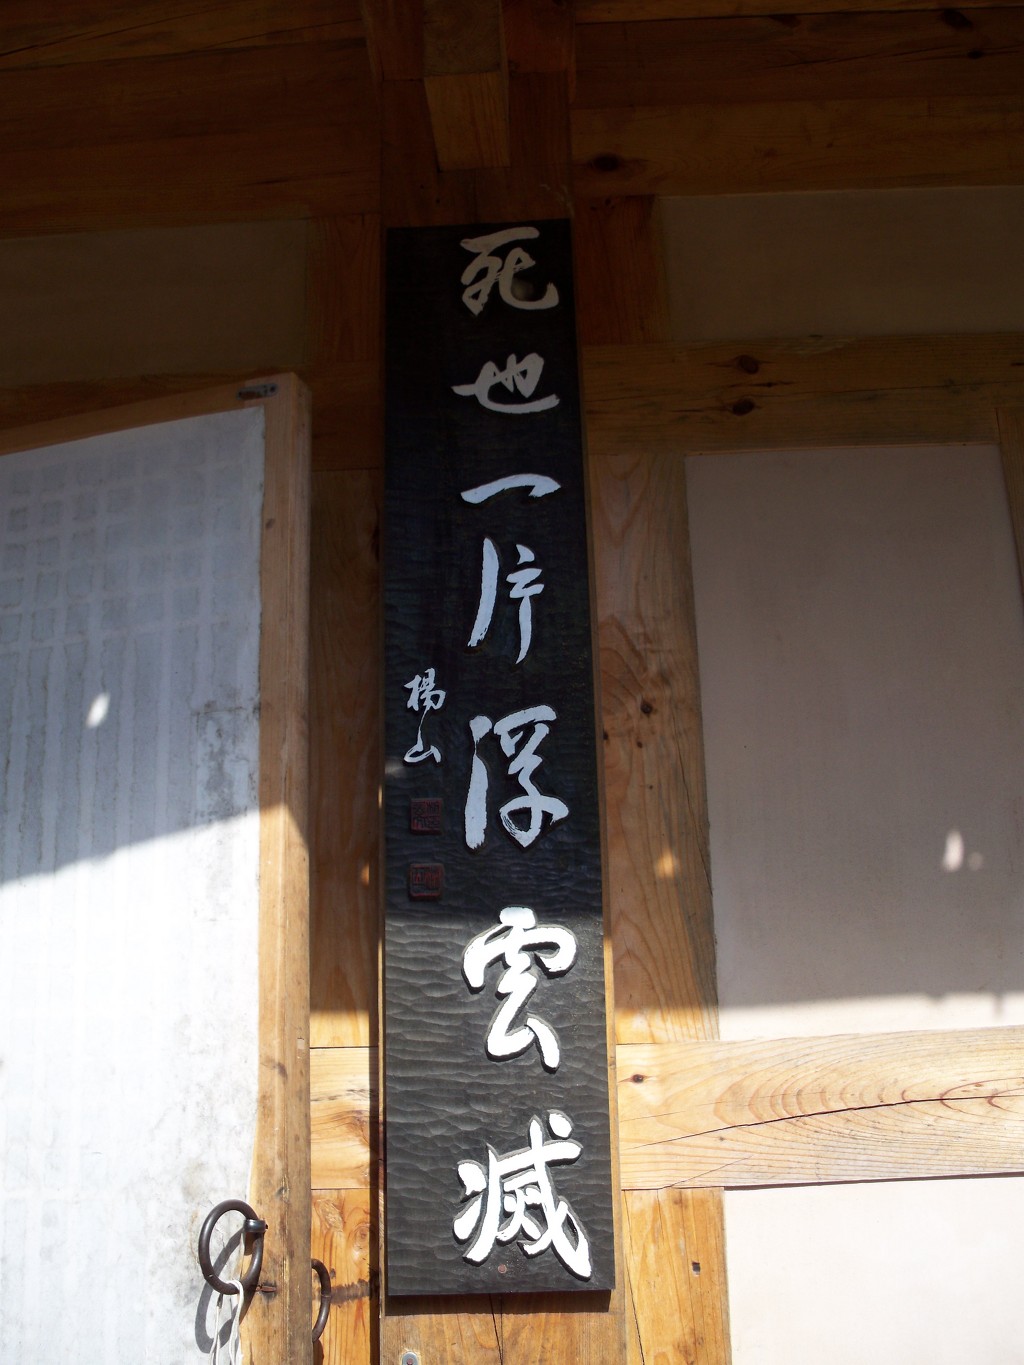 死也一片浮雲滅
楊山